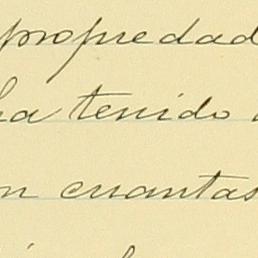 propiedad
ha tenido
n cuantas